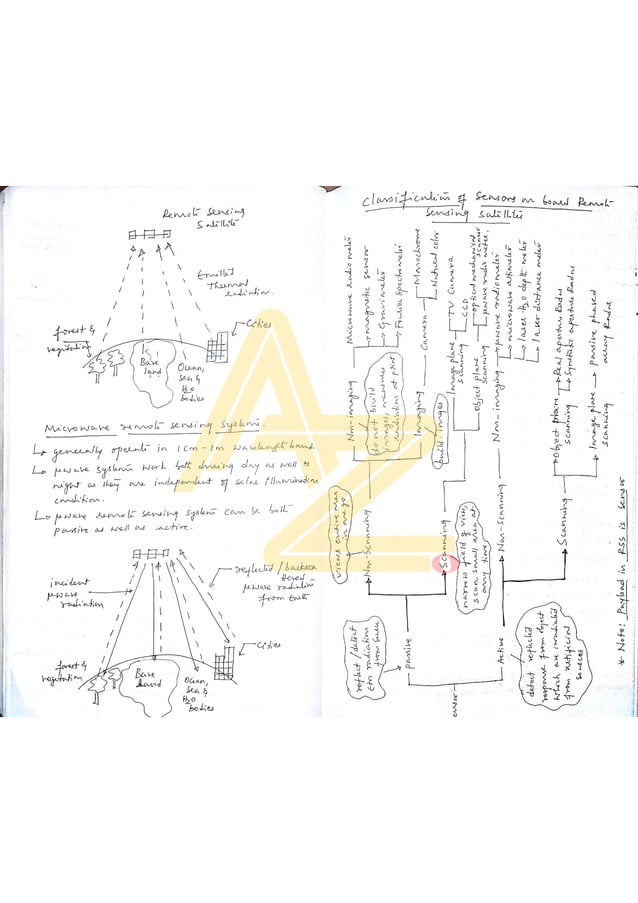 Remote Sensing
Satellite
Emitted
thermal
radiation.
forest &
vegitation
Cities
Bare
land
Ocean,
Sea &
H2O
bodies
Microwave remote sensing system.
↳ generally operate in 1cm-1m wavelength band
↳ μwave systems work both during day as well as
night as they are independent of solar illumination
condition.
↳ μwave remote sensing system can be both
passive as well as active.
incident
μwave
radiation
reflected / backsca
ttered
μwave radiation
from Earth
forest &
vegitation
Cities
Bare
land
Ocean,
Sea &
H2O
bodies
Classification of Sensors on board Remote
Sensing Satellites
ensor
Passive
reflect / detect
Em radiation
from
Non-Scanning
views entire area
in one go
Non-imaging
do not build
images, measures
radiation at point
Microwave radiometer
magnetic sensor
Gravimeter
Fourier Spectrometer
Imaging
build images
Camera
Monochrome
Natural color
Scanning
narrow field of view,
scan small area at
any time
Image plane
scanning
TV Camera
CCD
Object plane
scanning
optical mechanical
scanner
μwave radiometer
Active
detect reflected
response from object
which are irradiated
from artificial
sources
Non-Scanning
Non-imaging
μwave radiometer
microwave altimeter
laser H2O depth meter
laser distance meter
Scanning
Object plane
scanning
Real aperture Radar
Synthetic aperture Radar
Image plane
scanning
Passive phased
array Radar
* Note: Payload in RSS is sensor
AZ